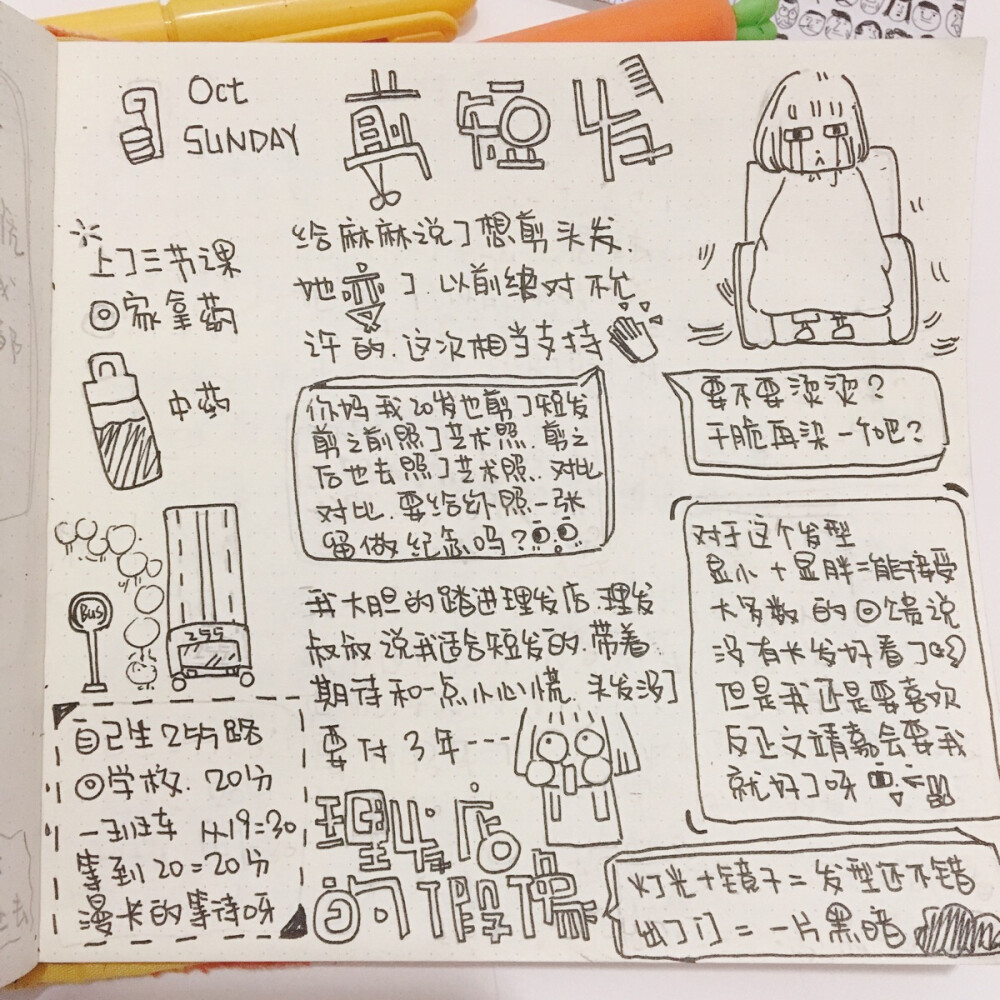 Oct
SUNDAY
剪短发
上了三节课
回家拿药
中药
给麻麻说了想剪头发.
她 了.以前绝对不允
许的.这次相当支持
你妈我20岁也剪了短发
剪之前照了艺术照.剪之
后也去照了艺术照.对比
对比.要给你照一张
留做纪念吗?
要不要烫烫?
干脆再染一个吧?
BUS
255
我大胆的踏进理发店.理发
叔叔说我适合短发的.带着
期待和一点小心慌.头发没了
要付3年---
对于这个发型
显小+显胖=能接受
大多数的回馈说
没有长发好看了
但是我还是要喜欢
反正文靖 会要我
就好了呀
自己坐255路
回学校.20分
一班车 从19=30
等到20=20分
漫长的等待呀
理发店
的
灯光+镜子=发型还不错
出了门=一片黑暗